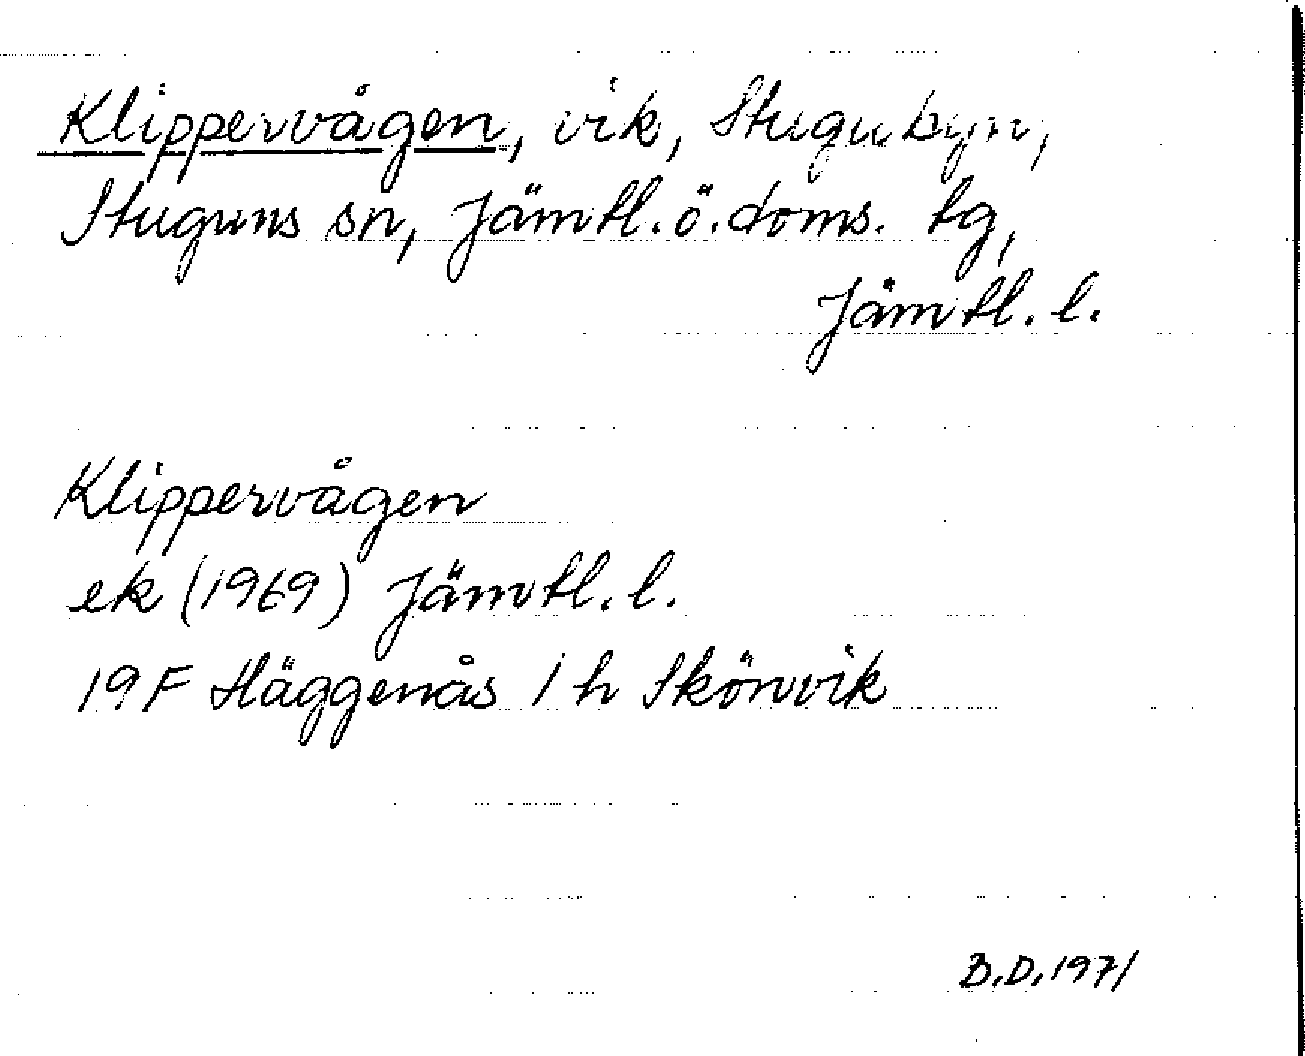 Klippervågen, vik, Stugubyn,
Stuguns sn, Jämtl. ö. doms. tg,
Jämtl. l.
Klippervågen
ek (1969) Jämtl. l.
19F Häggenås 1h Skönvik
B.D. 1971